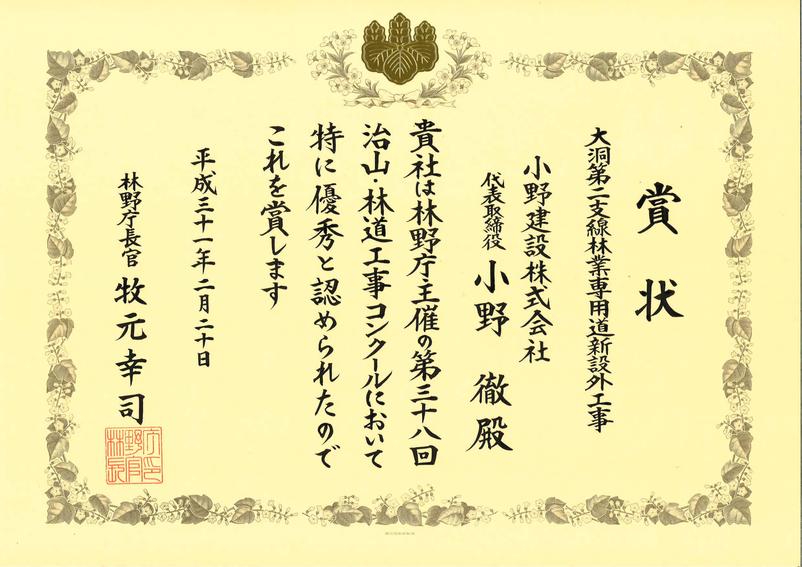 賞状
大洞第二支線林業専用道新設外工事
小野建設株式会社
代表取締役 小野 徹 殿
貴社は林野庁主催の第三十八回
治山・林道工事コンクールにおいて
特に優秀と認められたので
これを賞します
平成三十一年二月二十日
林野庁長官 牧元幸司